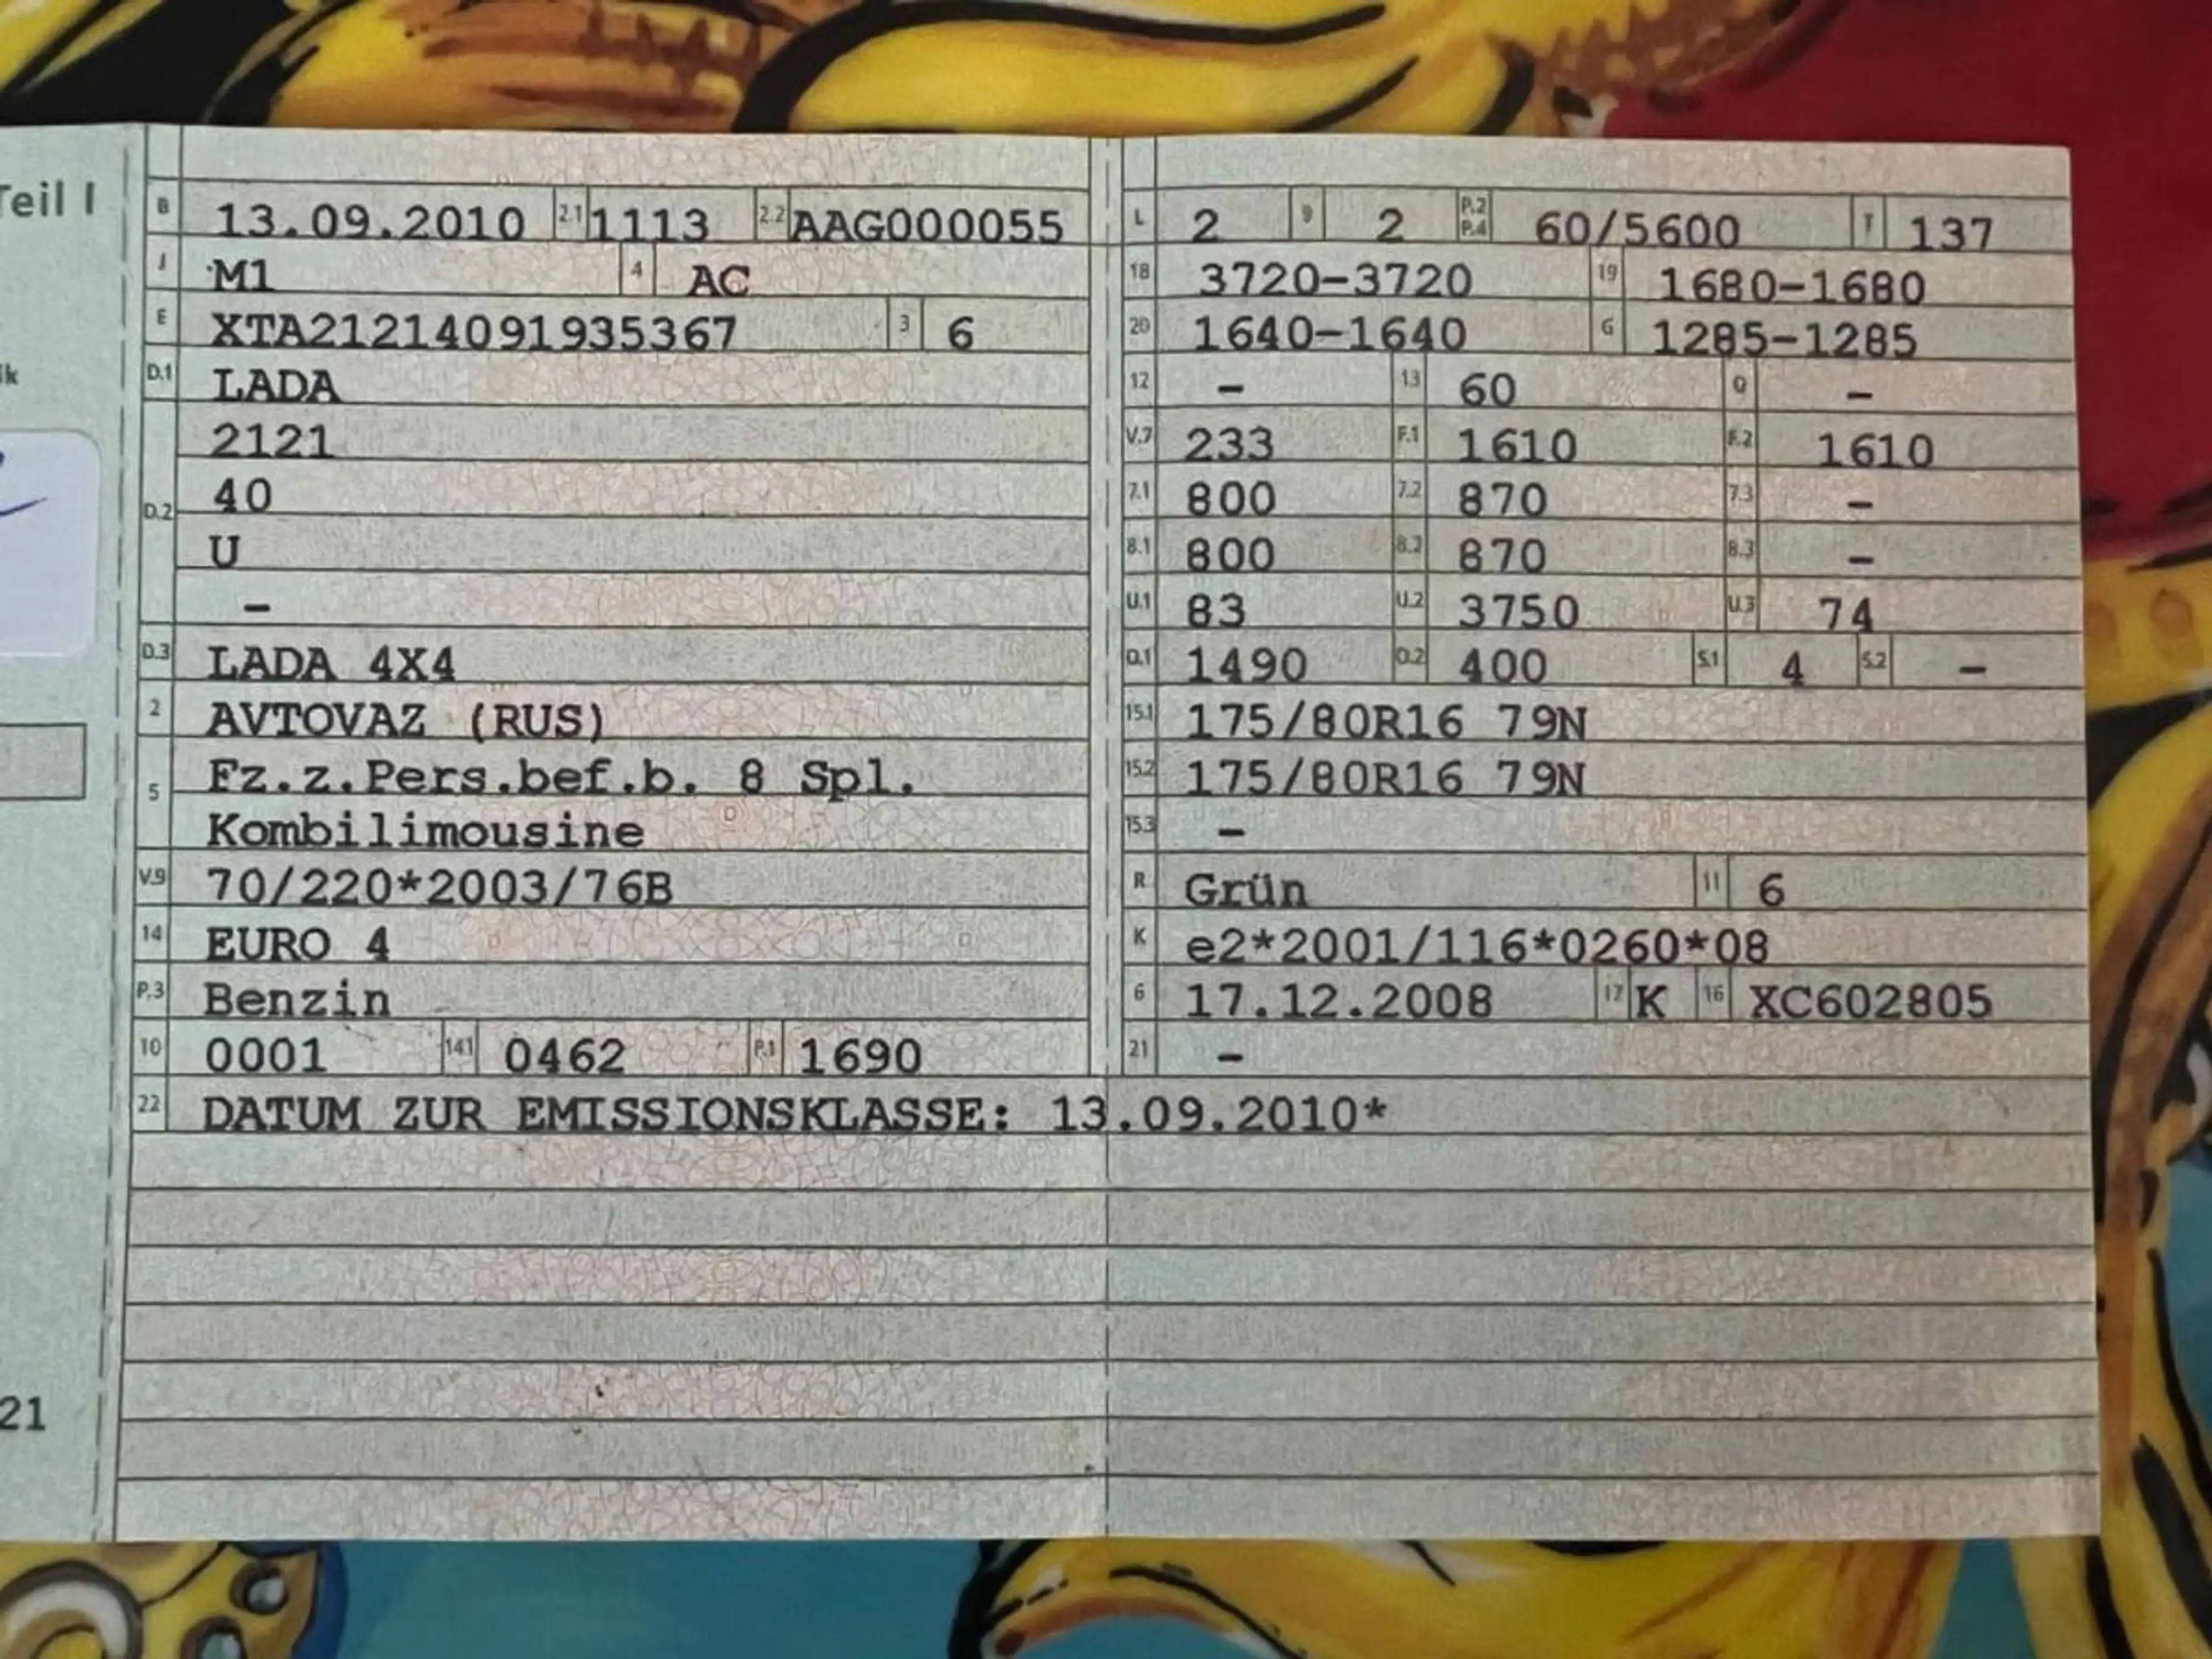 Teil I
ik
21
B 13.09.2010 2.1 1113 2.2 AAG000055
J M1 4 AC
E XTA21214091935367 3 6
D.1 LADA
2121
D.2 40
U
–
D.3 LADA 4X4
2 AVTOVAZ (RUS)
5 Fz.z.Pers.bef.b. 8 Spl.
Kombilimousine
V.9 70/220*2003/76B
14 EURO 4
P.3 Benzin
10 0001 14.1 0462 P.1 1690
L 2 9 2 P.2 P.4 60/5600 T 137
18 3720–3720 19 1680–1680
20 1640–1640 G 1285–1285
12 – 13 60 Q –
V.7 233 F.1 1610 F.2 1610
7.1 800 7.2 870 7.3 –
8.1 800 8.2 870 8.3 –
U.1 83 U.2 3750 U.3 74
O.1 1490 O.2 400 S.1 4 S.2 –
15.1 175/80R16 79N
15.2 175/80R16 79N
15.3 –
R Grün 11 6
K e2*2001/116*0260*08
6 17.12.2008 17 K 16 XC602805
21 –
22 DATUM ZUR EMISSIONSKLASSE: 13.09.2010*